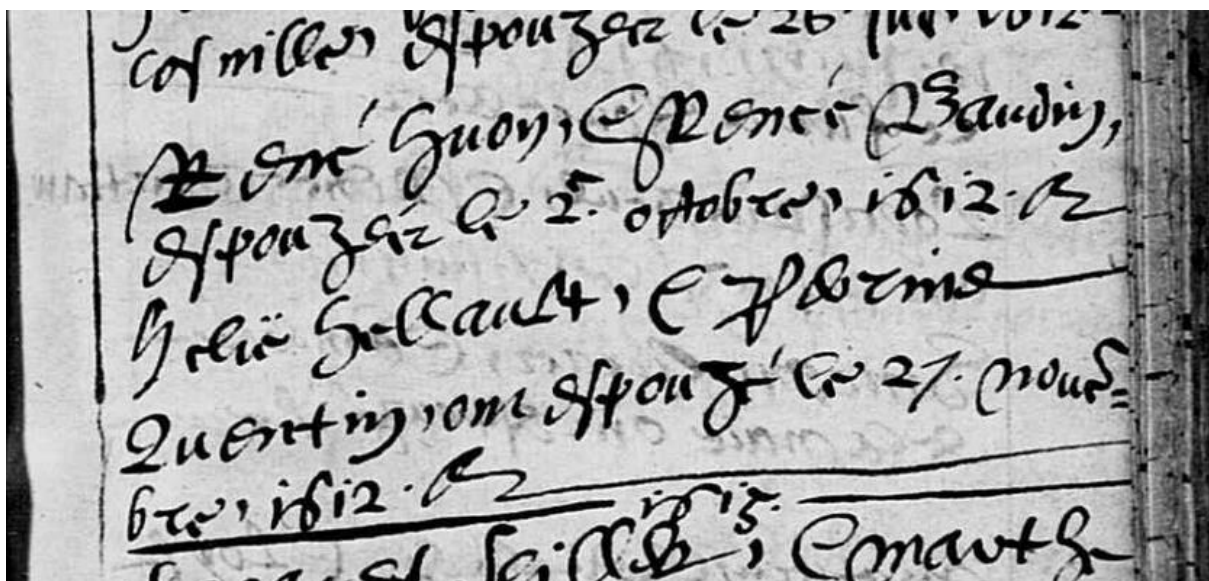 espouzéz le 26 1612
René Huon, & Renée Baudin,
espouzéz le 2.e octobre, 1612.
Helie Hellault, & Perrine
Quentin, ont espouzé le 27. nouē=
bre, 1612.
1613.
& marthe